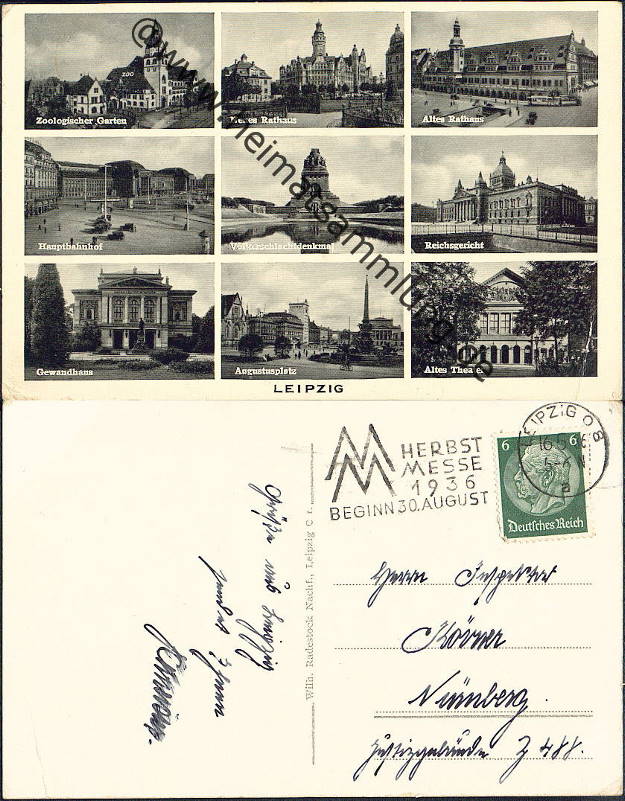 ZOO
Zoologischer Garten
Neues Rathaus
Altes Rathaus
Hauptbahnhof
Völkerschlachtdenkmal
Reichsgericht
Gewandhaus
Augustusplatz
Altes Theater
LEIPZIG
www.heimatsammlung.de
LEIPZIG O 8
16
a
HERBST
MESSE
1936
BEGINN 30. AUGUST
6 6
Deutsches Reich
Wilh. Radestock Nachf., Leipzig C 1.
Grüße aus Leipzig
sendet Ihnen
Herrn Inspektor
Körner
Nürnberg.
Justizgebäude Z 488.